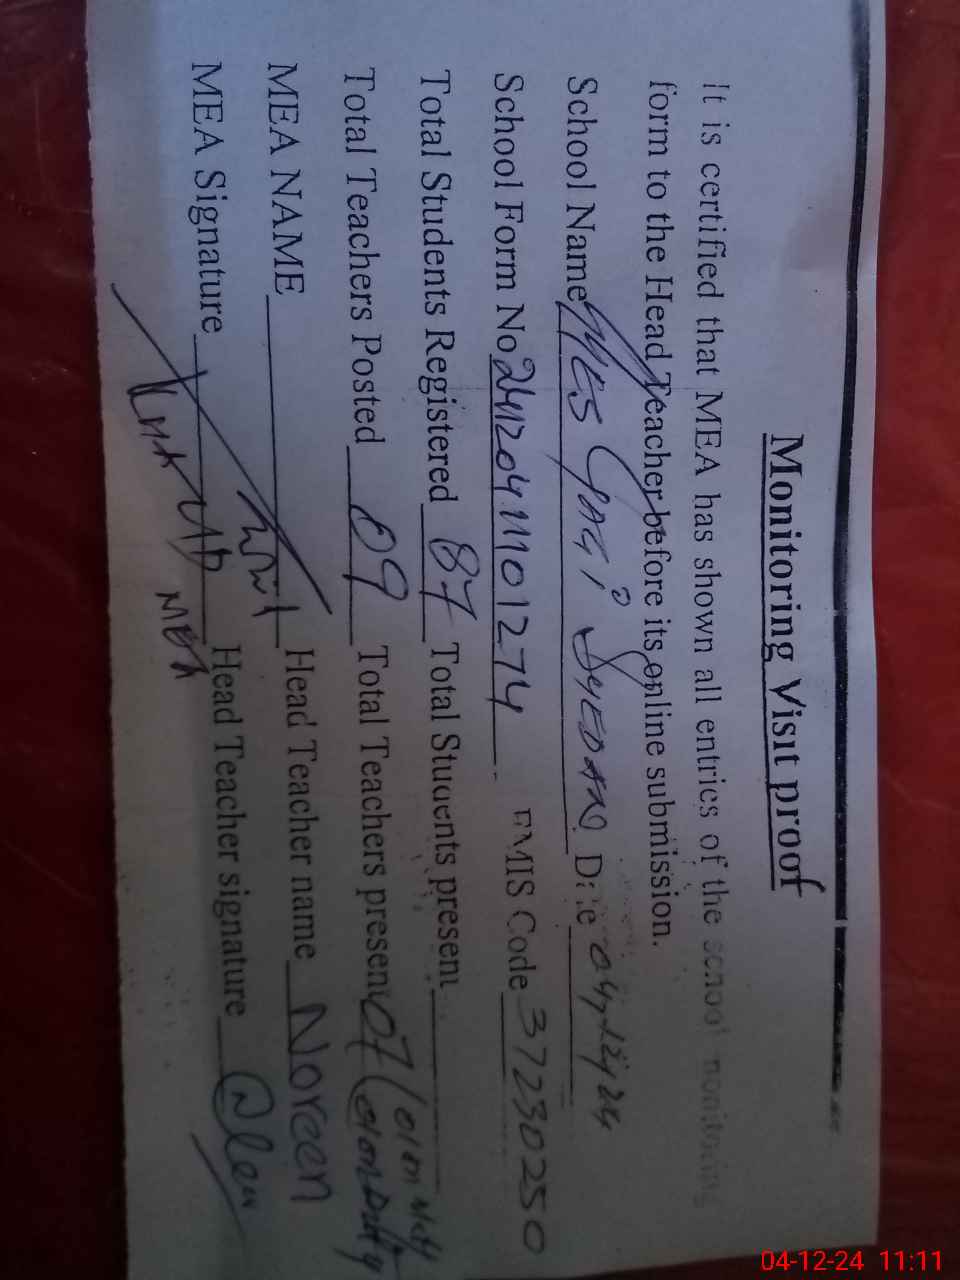 Monitoring Visit proof
It is certified that MEA has shown all entries of the school monitoring
form to the Head Teacher before its online submission.
School Name GGES GAGI SYEDAN Date 04,12,24
School Form No 241204111101274 EMIS Code 37230250
Total Students Registered 87 Total Students present
Total Teachers Posted 09 Total Teachers present 07
MEA NAME Head Teacher name Noreen
MEA Signature MEA Head Teacher signature
04-12-24 11:11